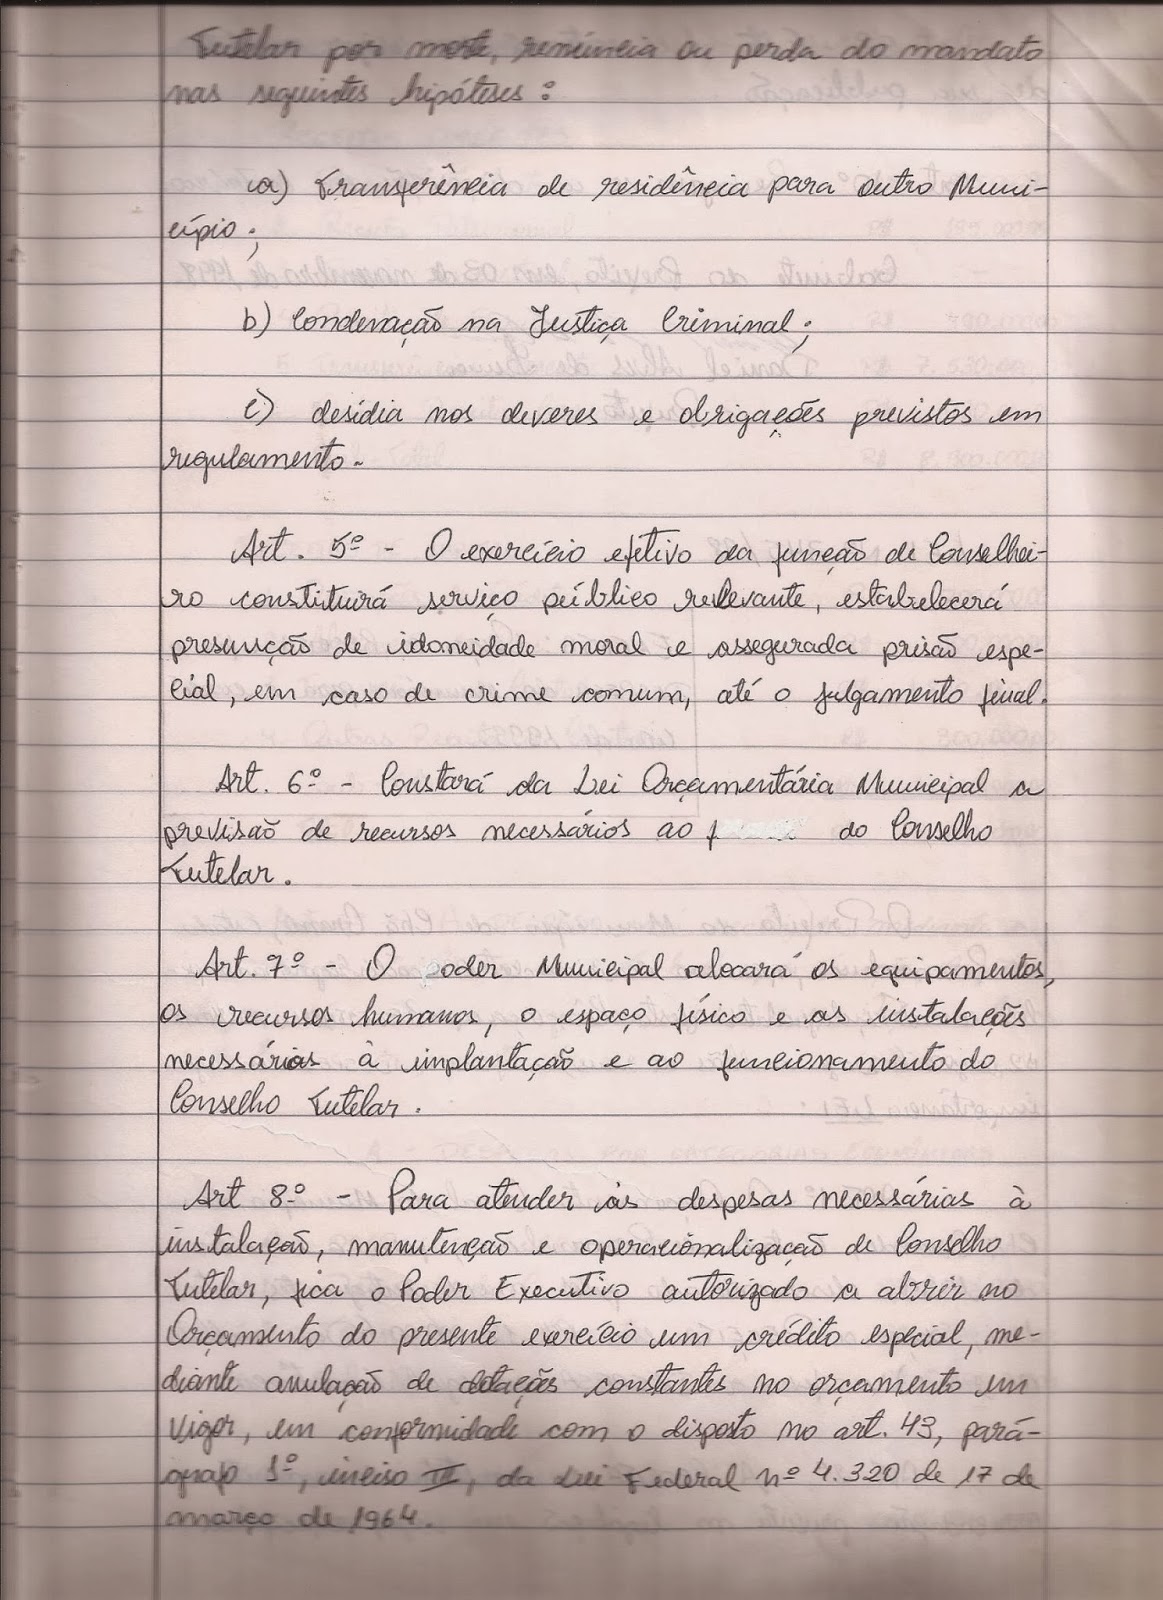 Tutelar por morte, renúncia ou perda do mandato
nas seguintes hipóteses :
a) Transferência de residência para outro Muni-
cípio ;
b) Condenação na Justiça Criminal ;
c) desídia nos deveres e obrigações previstos em
regulamento.
Art. 5º - O exercício efetivo da função de Conselhei-
ro constituirá serviço público relevante, estabelecerá
presunção de idoneidade moral e assegurada prisão espe-
cial, em caso de crime comum, até o julgamento final.
Art. 6º - Constará da Lei Orçamentária Municipal a
previsão de recursos necessários ao do Conselho
Tutelar.
Art. 7º - O poder Municipal alocará os equipamentos,
os recursos humanos, o espaço físico e as instalações
necessárias à implantação e ao funcionamento do
Conselho Tutelar.
Art 8º - Para atender às despesas necessárias à
instalação, manutenção e operacionalização de Conselho
Tutelar, fica o Poder Executivo autorizado a abrir no
Orçamento do presente exercício um crédito especial, me-
diante anulação de dotações constantes no orçamento em
vigor, em conformidade com o disposto no art. 43, pará-
grafo 1º, inciso III, da Lei Federal nº 4.320 de 17 de
março de 1964.